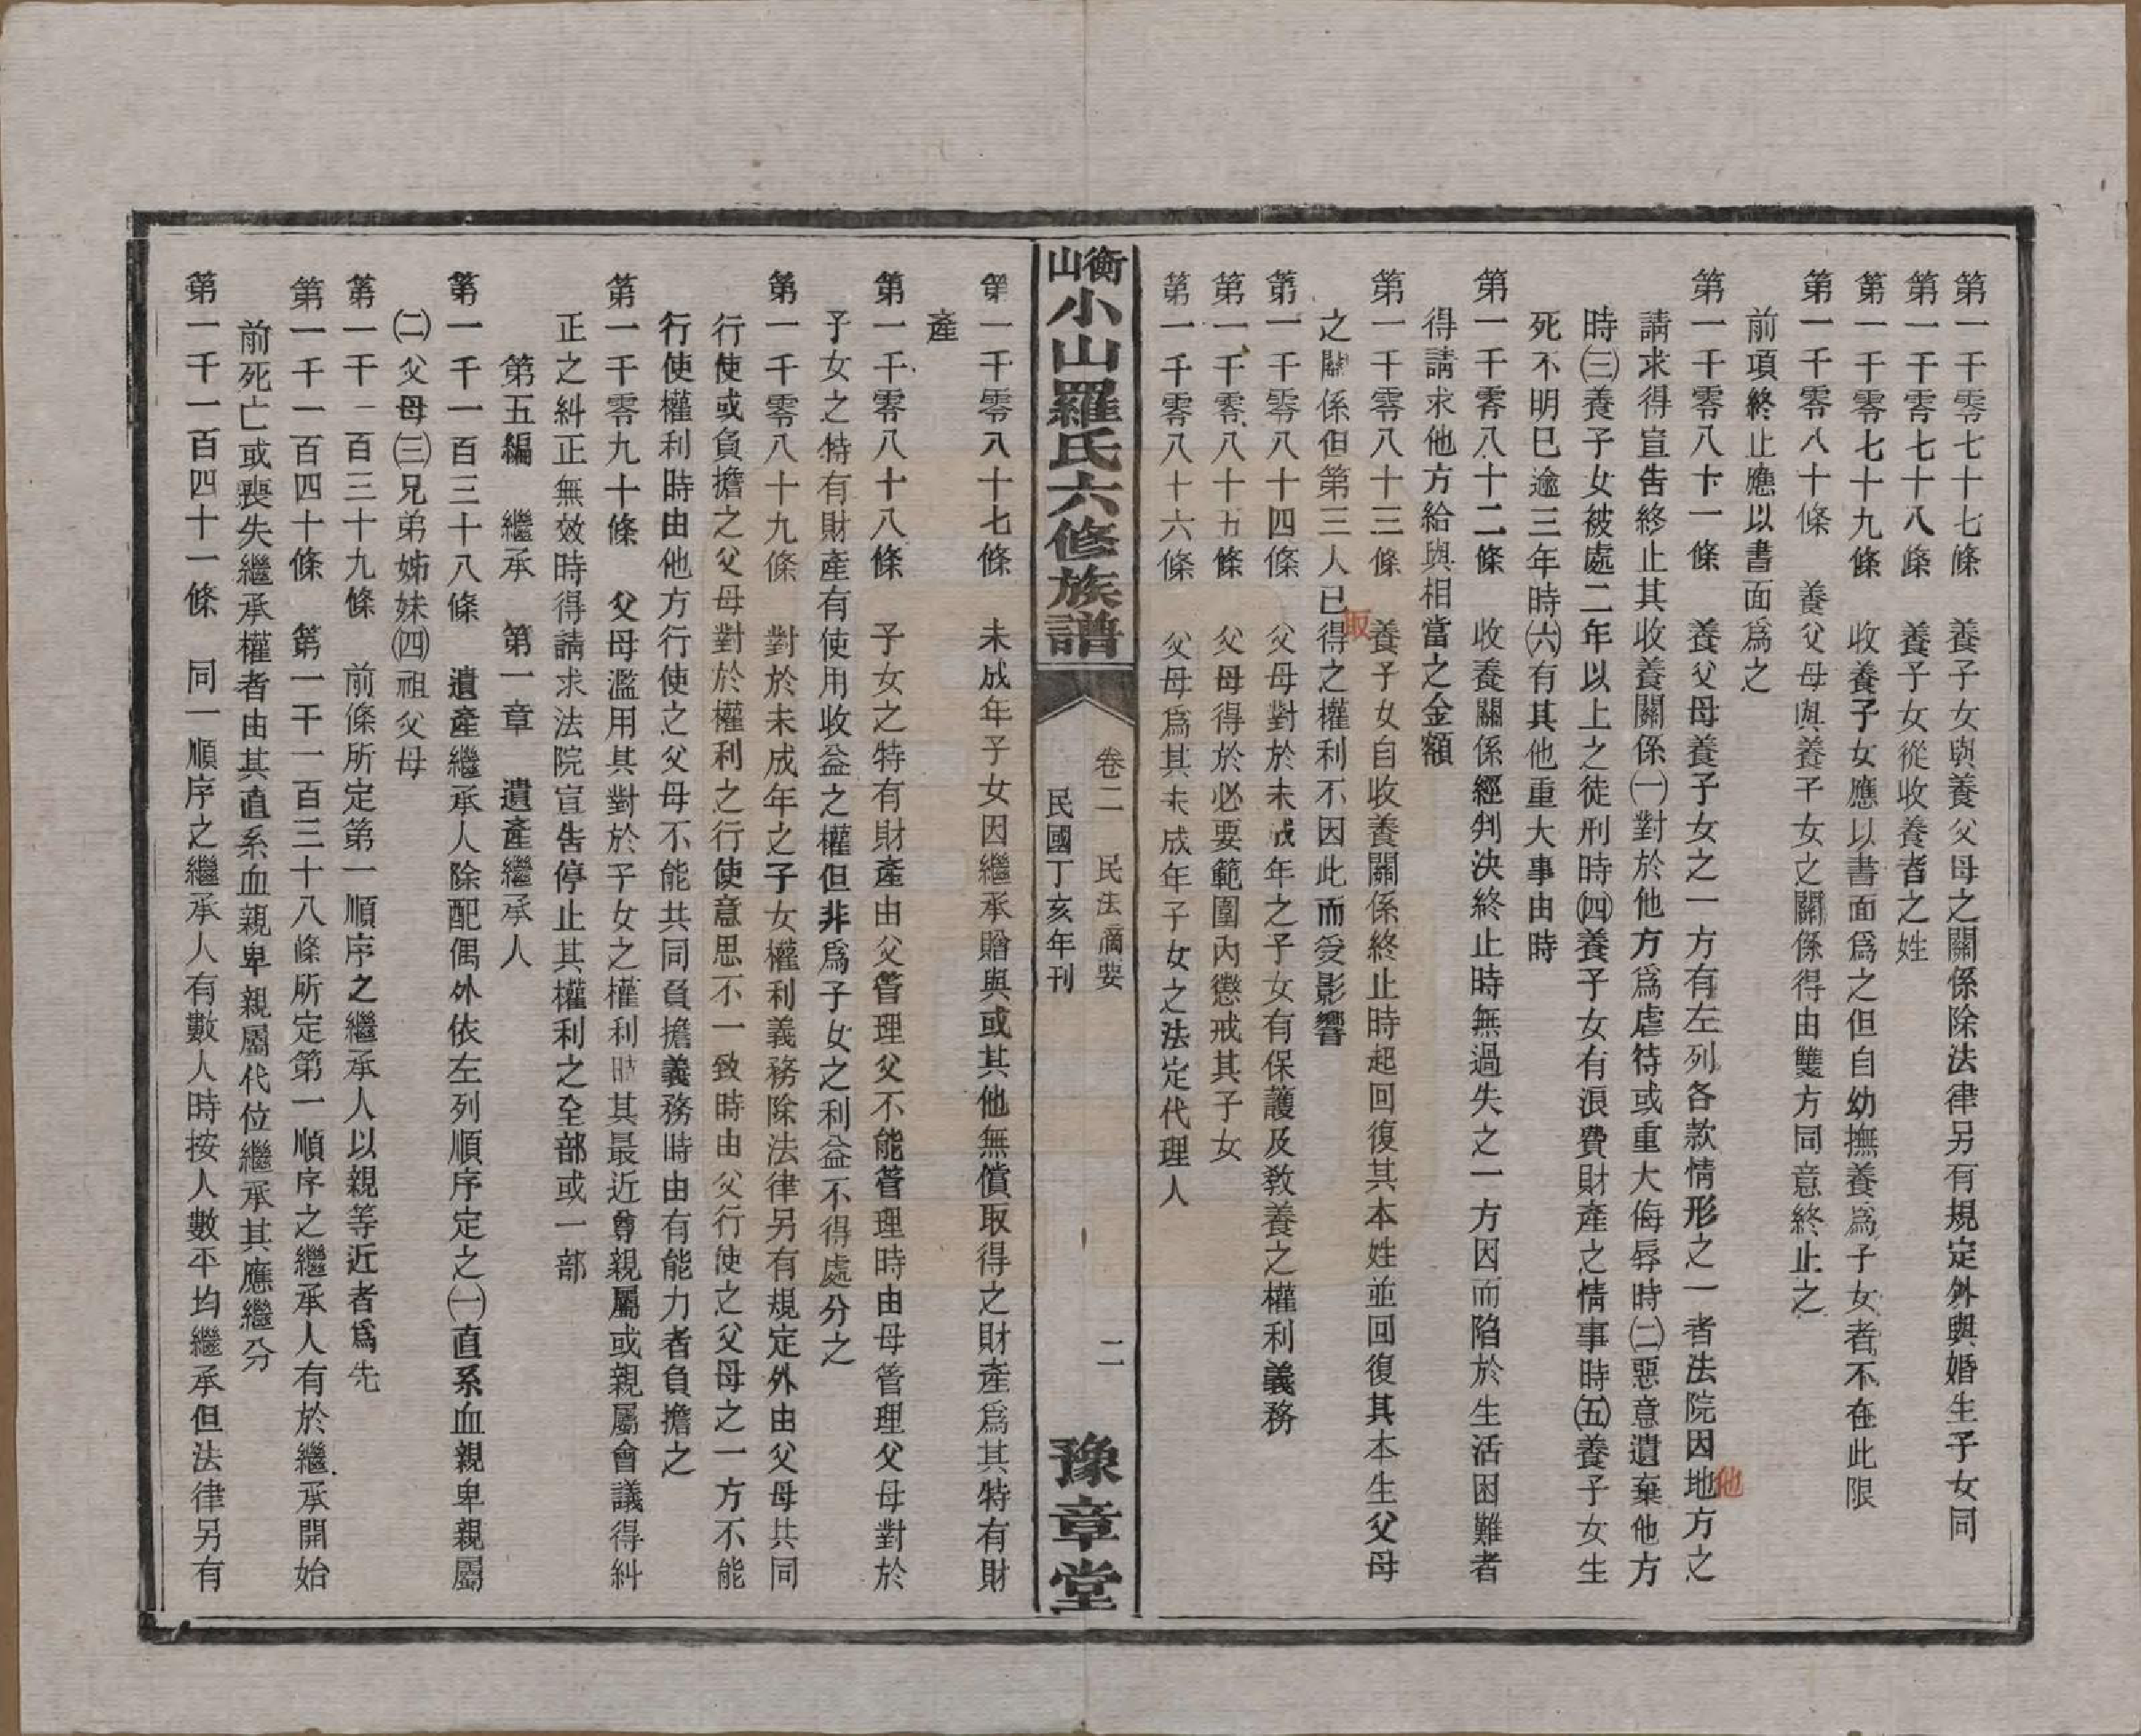 第一千零七十七條　養子女與養父母之關係除法律另有規定外與婚生子女同
第一千零七十八條　養子女從收養者之姓
第一千零七十九條　收養子女應以書面爲之但自幼撫養爲子女者不在此限
第一千零八十條　養父母與養子女之關係得由雙方同意終止之
前項終止應以書面爲之
第一千零八十一條　養父母養子女之一方有左列各款情形之一者法院因地方之
他
請求得宣告終止其收養關係㈠對於他方爲虐待或重大侮辱時㈡惡意遺棄他方
時㈢養子女被處二年以上之徒刑時㈣養子女有浪費財產之情事時㈤養子女生
死不明已逾三年時㈥有其他重大事由時
第一千零八十二條　收養關係經判決終止時無過失之一方因而陷於生活困難者
得請求他方給與相當之金額
第一千零八十三條　養子女自收養關係終止時起回復其本姓並回復其本生父母
之關係但第三人已得之權利不因此而受影響
取
第一千零八十四條　父母對於未成年之子女有保護及敎養之權利義務
第一千零八十五條　父母得於必要範圍內懲戒其子女
第一千零八十六條　父母爲其未成年子女之法定代理人
衡山小山羅氏六修族譜
卷二　民法摘要　二
民國丁亥年刊
豫章堂
第一千零八十七條　未成年子女因繼承贈與或其他無償取得之財產爲其特有財
產
第一千零八十八條　子女之特有財產由父管理父不能管理時由母管理父母對於
子女之特有財產有使用收益之權但非爲子女之利益不得處分之
第一千零八十九條　對於未成年之子女權利義務除法律另有規定外由父母共同
行使或負擔之父母對於權利之行使意思不一致時由父行使之父母之一方不能
行使權利時由他方行使之父母不能共同負擔義務時由有能力者負擔之
第一千零九十條　父母濫用其對於子女之權利時其最近尊親屬或親屬會議得糾
正之糾正無效時得請求法院宣告停止其權利之全部或一部
第五編　繼承　第一章　遺產繼承人
第一千一百三十八條　遺產繼承人除配偶外依左列順序定之㈠直系血親卑親屬
㈡父母㈢兄弟姊妹㈣祖父母
第一千一百三十九條　前條所定第一順序之繼承人以親等近者爲先
第一千一百四十條　第一千一百三十八條所定第一順序之繼承人有於繼承開始
前死亡或喪失繼承權者由其直系血親卑親屬代位繼承其應繼分
第一千一百四十一條　同一順序之繼承人有數人時按人數平均繼承但法律另有